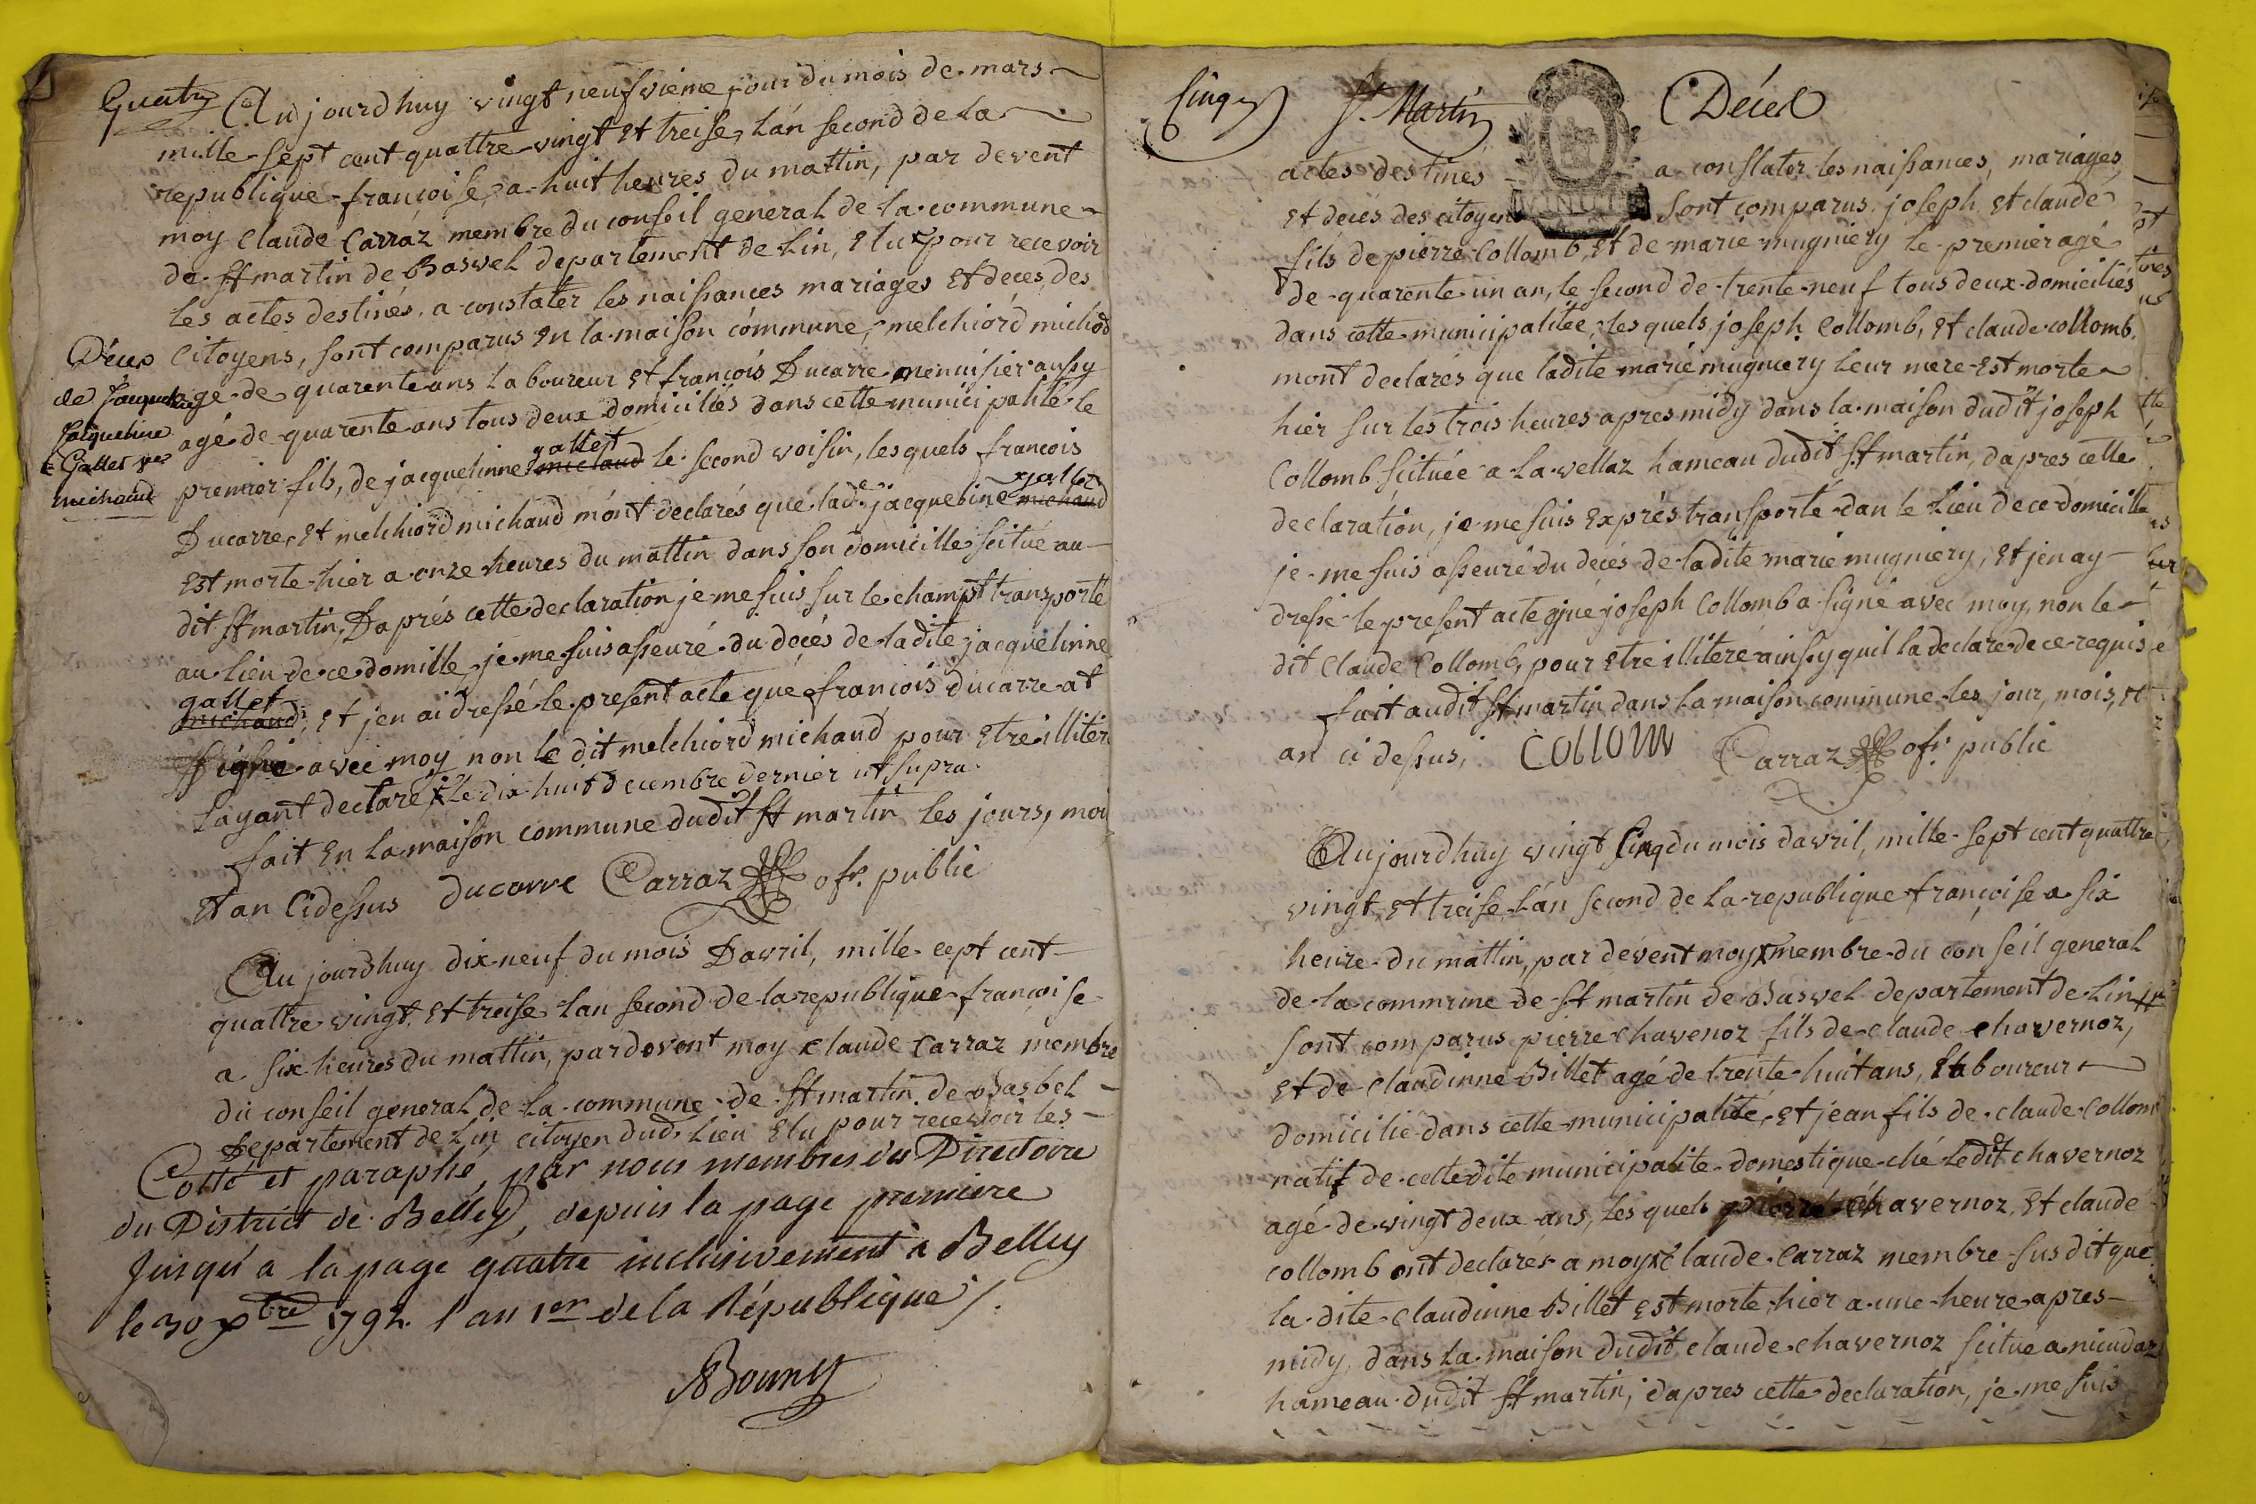 Quatre
Aujourdhuy vingt neufvieme jour du mois de mars
mille sept cent quattre vingt Et treise, lán second de La
republique françoise, a huit heures du mattin, par devent
moy Claude Carraz membre du conseil general de la commune
de St martin de Bavel departement de Lin, Elu pour recevoir
les actes destinés, a constater les naissances mariages Et deces des
Citoyens, sont comparus En la maison commune, melchiord michod
agé de quarente ans laboureur Et françois Ducarre menuisier aussy
agé de quarente ans tous deux domiciliés dans cette municipalité le
premier fils, de jacquelinne gallet michaud le second voisin, les quels francois
Ducarre, Et melchiord michaud mónt declarés que lade. jacqueline gallet michaud
Est morte hier a onze heures du mattin dans son domicille scitué au
dit St martin, Daprés cette declaration je me suis sur le champt transporté
au lieu de ce domille, je me suis asseuré du décés de ladite jacquelinne
gallet michaud, Et jen ai dressé le present acte que francois ducarre at
signé avec moy non le dit melchiord michaud pour Etre illiteré
Layant declaré le dix huit decembre dernier ut supra
fait En la maison commune dudit St martin les jours, moi
Et an Cidessus Ducarre Carraz ofr. public
Décès
de jacqueline
jacqueline
Gallet
michaud
Aujourdhuy dix-neuf du mois Davril, mille cept cent
quattre vingt Et treise lan second de la republique françoise
a six heures du mattin, pardevent moy claude Carraz membre
du conseil general de la commune de St martin de Basbel
Departement de Lin citoyen dud. Lieu Elu pour recevoir les
Cotté et paraphé, par nous membres du Directoire
du District de Belley, depuis la page premiere
jusqu'a la page quatre inclusivement a Belley
le 30 xbre 1792. l'an 1er de la République /.
Cinq St. Martin Décès
actes destinés a constater les naissances, mariages
MINUTE
Et decés des citoyens Sont comparus joseph Et claude
fils de pierre Collomb, Et de marie mugniery le premier agé
de quarente un an, le second de trente neuf tous deux domiciliés
dans cette municipalitée les quels joseph Collomb, Et claude collomb
mont declarés que ladite marie mugniery leur mere Est morte
hier sur les trois heures apres midy dans la maison dudit joseph
Collomb scituée a la vellaz hameau dudit St martin, dapres cette
declaration, je me suis Exprés transporté dan le Lieu de ce domicille
je me suis asseuré du décés de ladite marie mugniery, Et jen ay
dressé le present acte que joseph Collomb a signé avec moy, non le
dit Claude Collomb, pour Etre illiteré ainsy quil la declaré de ce requis
fait audit St martin dans la maison commune les jour, mois, Et
an ci dessus, COLLOMB Carraz ofr. public
Aujourdhuy vingt cinq du mois davril, mille sept cent quattre
vingt, Et treise lán second de la republique françoise a six
heure du mattin, par devent moy membre du conseil general
de la commune de St martin de Bavel departement de Lin
sont comparus pierre chavenoz fils de claude chavernoz,
Et de Claudinne Billet agé de trente huit ans, Laboureur
domicilié dans cette municipalité, Et jean fils de claude Collomb
natif de cette dite municipalite domestique ché ledit chavernoz
agé de vingt deux ans, les quels pierre chavernoz, Et claude
collomb ont declarés a moy claude Carraz membre susdit que
la dite claudinne Billet Est morte hier a une heure apres
midy, dans la maison dudit claude chavernoz scitue a
hameau dudit St martin, dapres cette declaration, je me suis